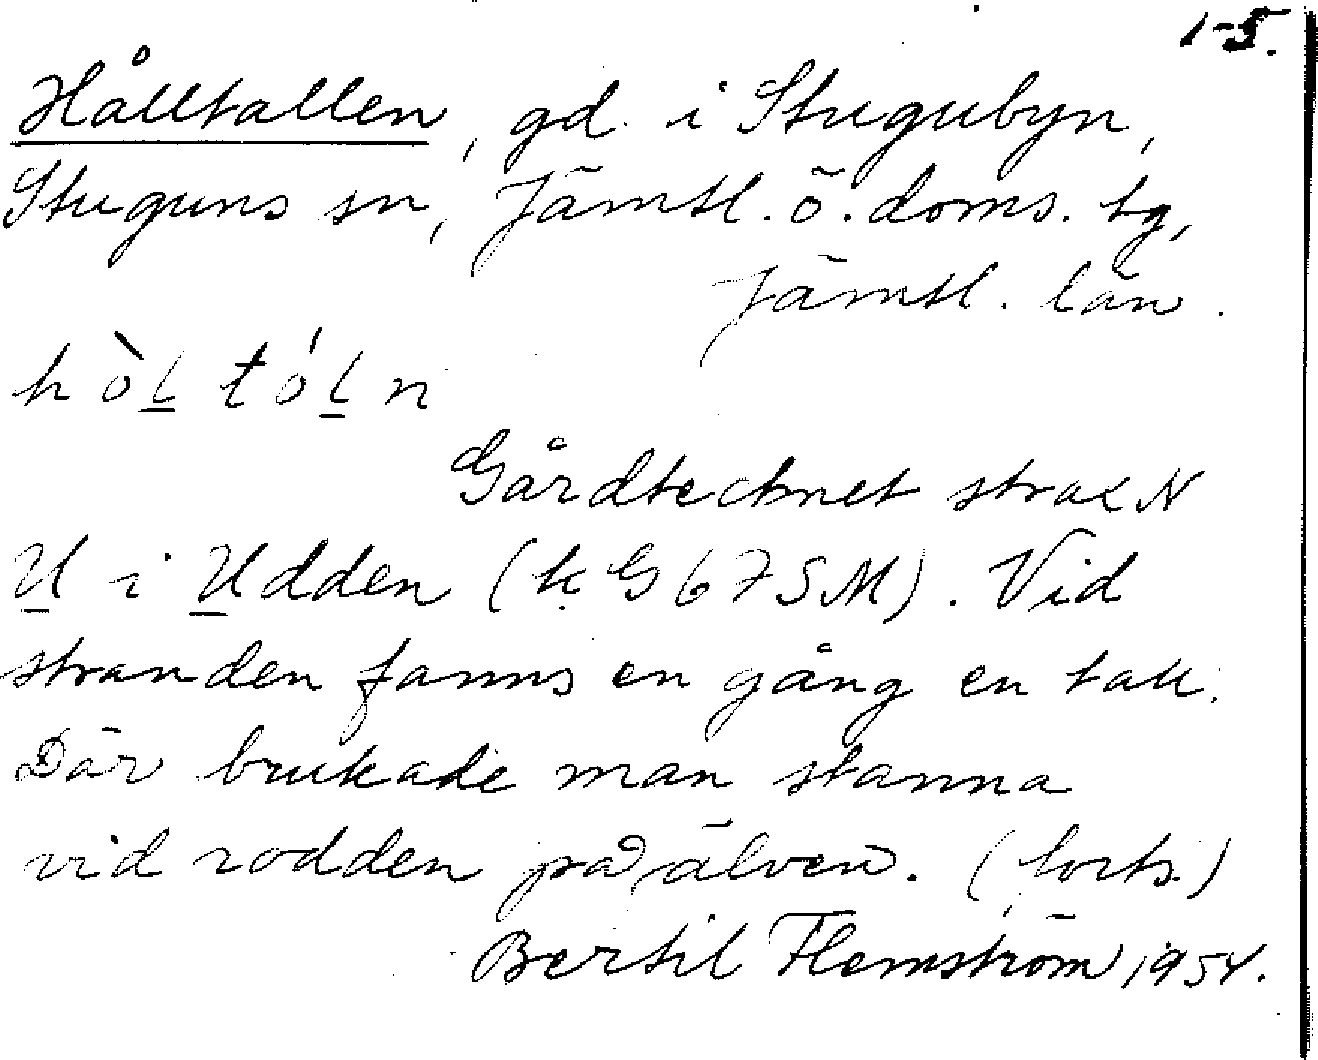 1-5.
Hålltallen, gd. i Stugubyn,
Stuguns sn, Jämtl. ö. doms. tg,
Jämtl. län.
hòl tóln
Gårdtecknet strax N
U i Udden (k G 67 SM). Vid
stranden fanns en gång en tall.
Där brukade man stanna
vid rodden på älven. (forts.)
Bertil Flemström 1954.